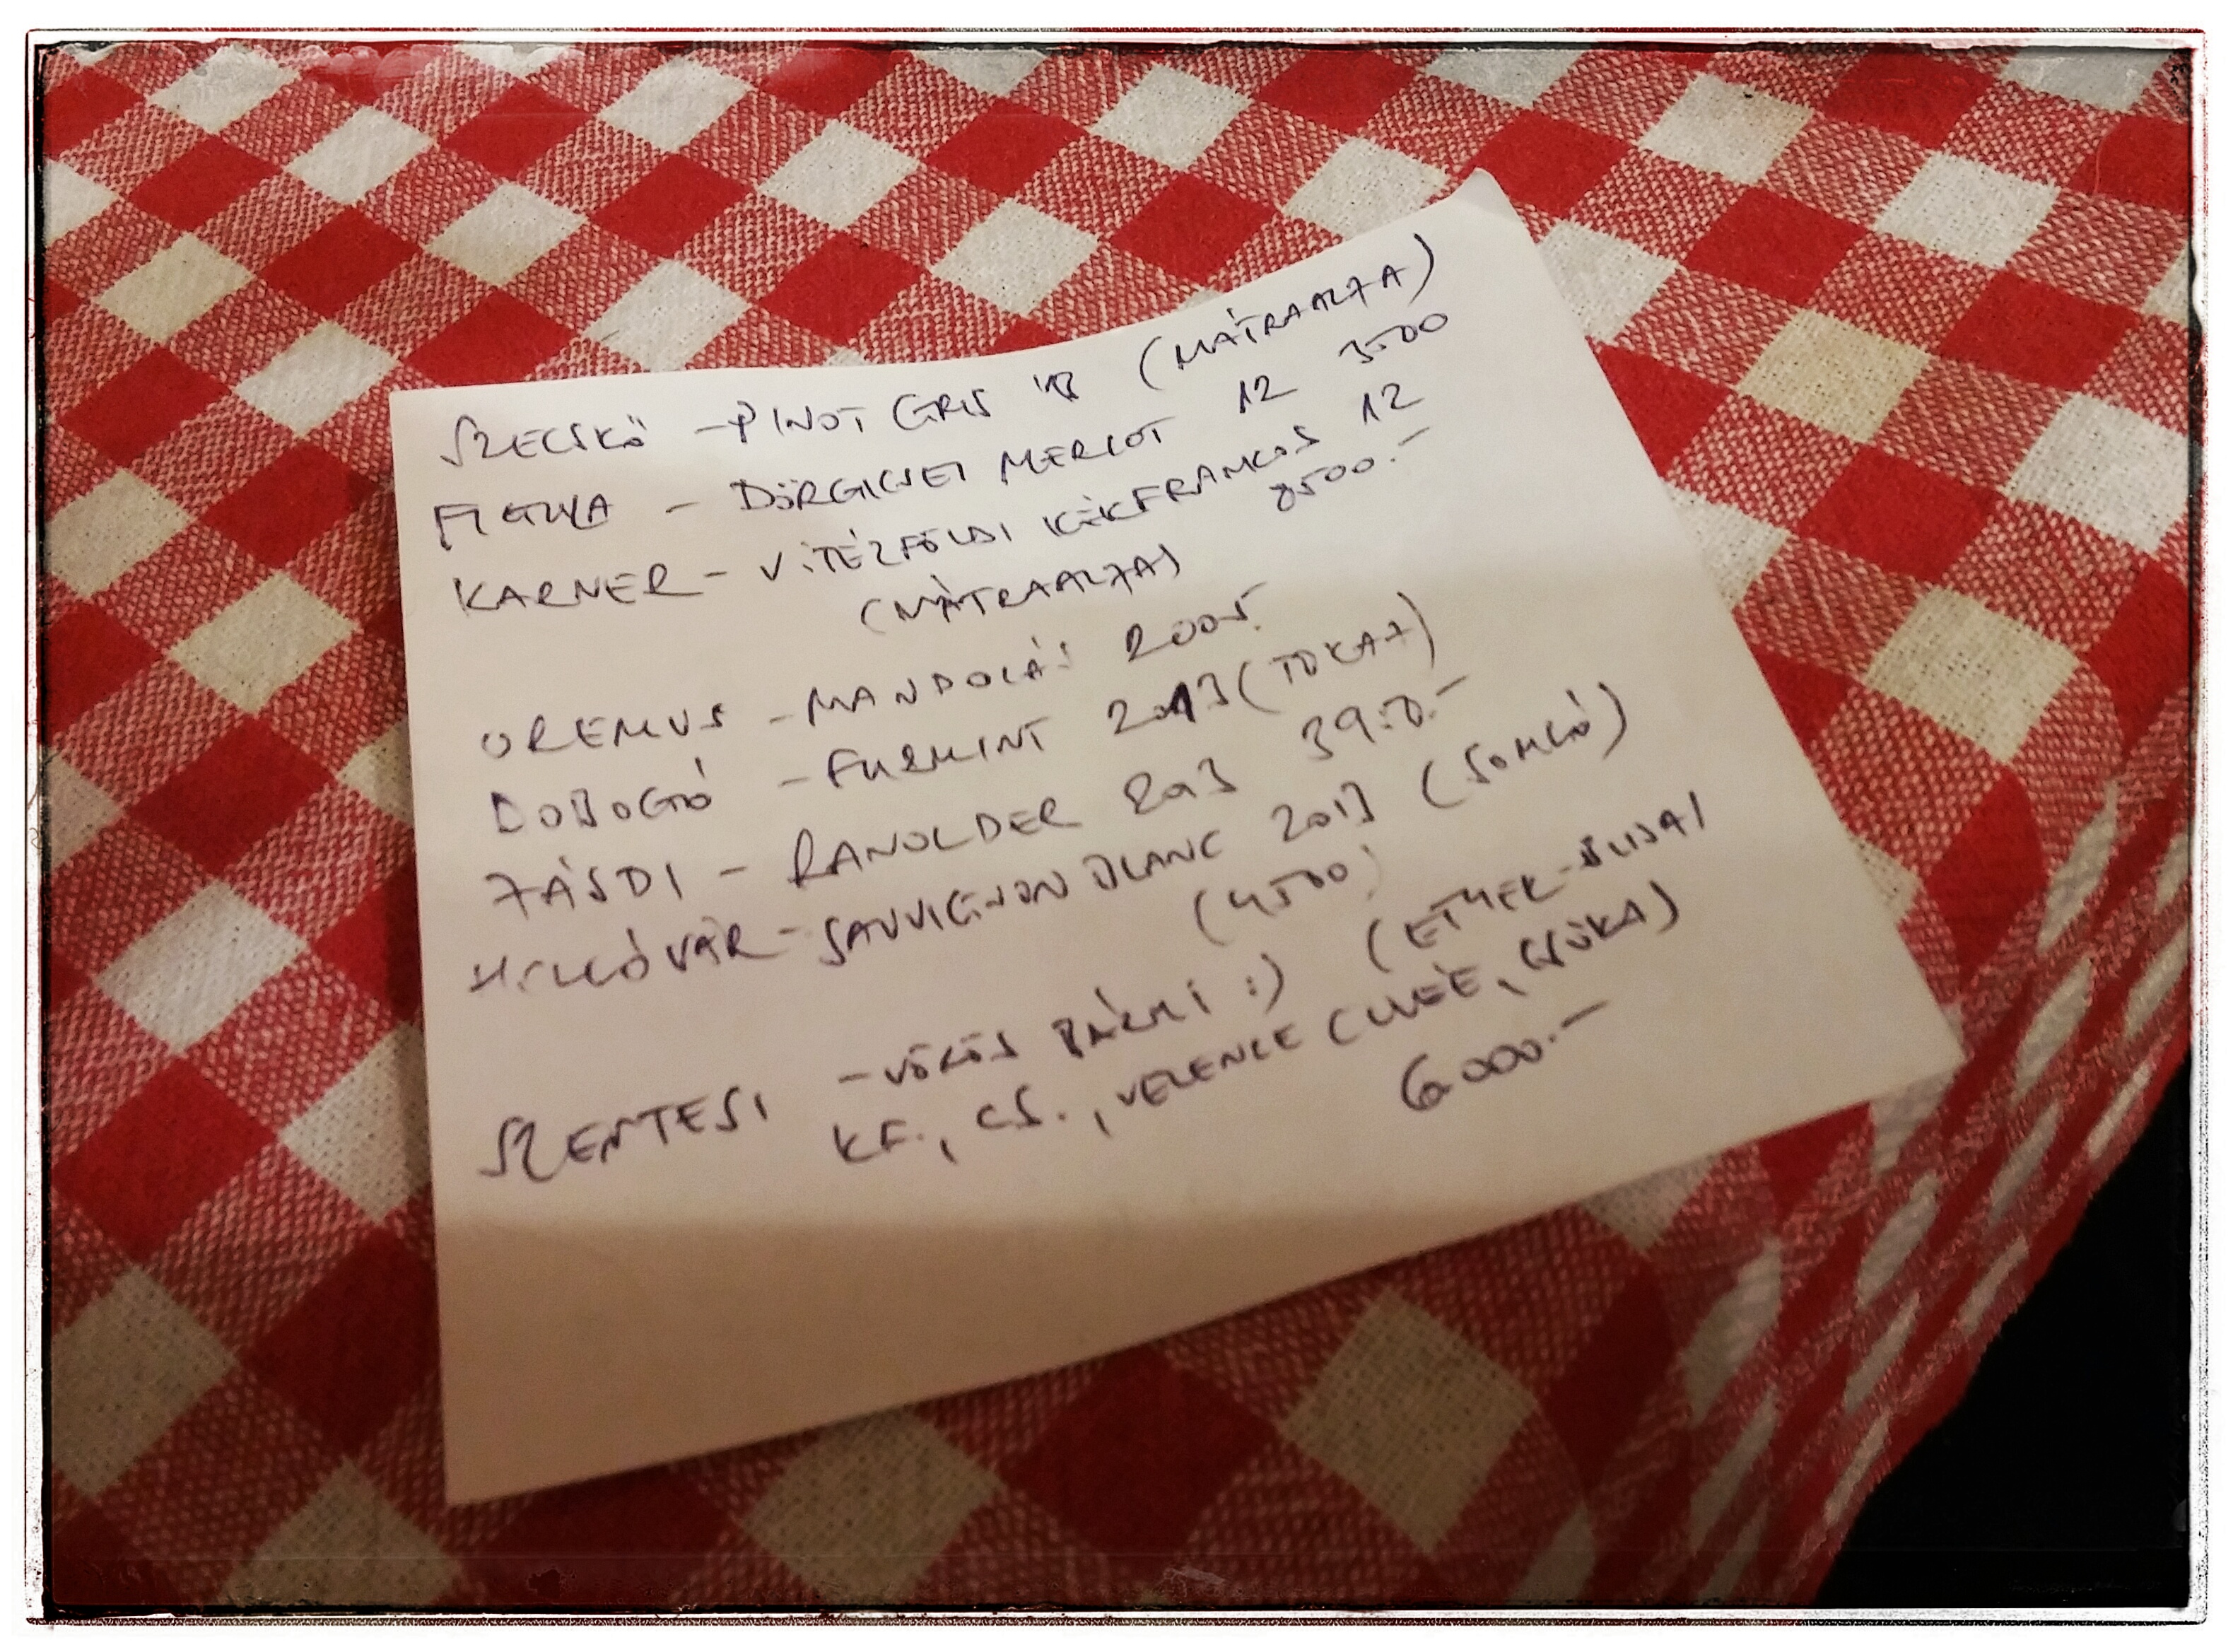 SZECSKŐ - PINOT GRIS '13 (MÁTRAALJA)
FIGULA - DÖRGICSEI MERLOT 12 3500
KARNER - VITÉZFÖLDI KÉKFRANKOS 12
8500.-
(MÁTRAALJA)
OREMUS - MANDOLÁS 2005.
DOBOGÓ - FURMINT 2013 (TOKAJ)
JÁSDI - RANOLDER 2013 3950.-
SAUVIGNON BLANC 2013 (SOMLÓ)
(4500)
SZENTESI - VÖRÖS :)
KF., CS., VELENCE CUVÉE, CSÓKA)
6000.-